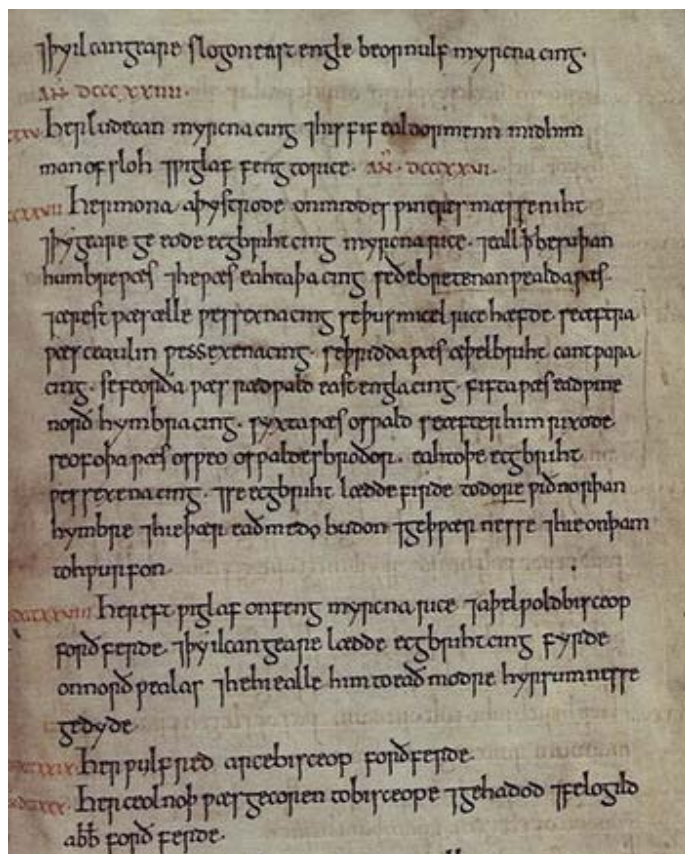 ⁊ þy ilcan geare slogon east engle beornulf myrcna cing.
AN̄. DCCCXXIIII.
Her ludecan myrcna cing ⁊ his fif ealdormenn mid him
man ofsloh ⁊ ƿiglaf feng to rice. AN̄. DCCCXXVI.
Her mona aþystrode on middes ƿintres mæsse niht
⁊ þy geare ge eode ecgbriht cing myrcna rice. ⁊ eall þ be suþan
humbre ƿæs ⁊ he ƿæs eahtaþa cing se ðe bretenanƿealda ƿæs.
⁊ ærest ƿæs ælle ƿessexna cing se þus micel rice hæfde. se æftra
ƿæs ceaulin ƿessexena cing. se þridda ƿæs æþelbriht cantƿara
cing. se feorða ƿæs rædƿald east engla cing. fifta ƿæs eadƿine
norð hymbra cing. syxta ƿæs osƿald se æfter him rixode
seofoþa ƿæs osƿeo osƿaldes broðor. eahtoþe ecgbriht
ƿessexena cing. ⁊ se ecgbriht lædde firde to dore ƿið norþan
hymbre ⁊ hie þær eadmedo budon ⁊ geþƿærnesse ⁊ hie on þam
tohƿurfon.
DCCCXXVIII Her eft ƿiglaf onfeng myrcna rice ⁊ aþelƿold bisceop
forð ferde. ⁊ þy ilcan geare lædde ecgbriht cing fyrde
on norð ƿealas ⁊ he hi ealle him to eaðmodre hyrsumnesse
gedyde.
Her ƿulfred arcebisceop forð ferde.
Her ceolnoþ ƿæs gecoren to bisceope ⁊ gehadod ⁊ felogild
abb̄ forð ferde.